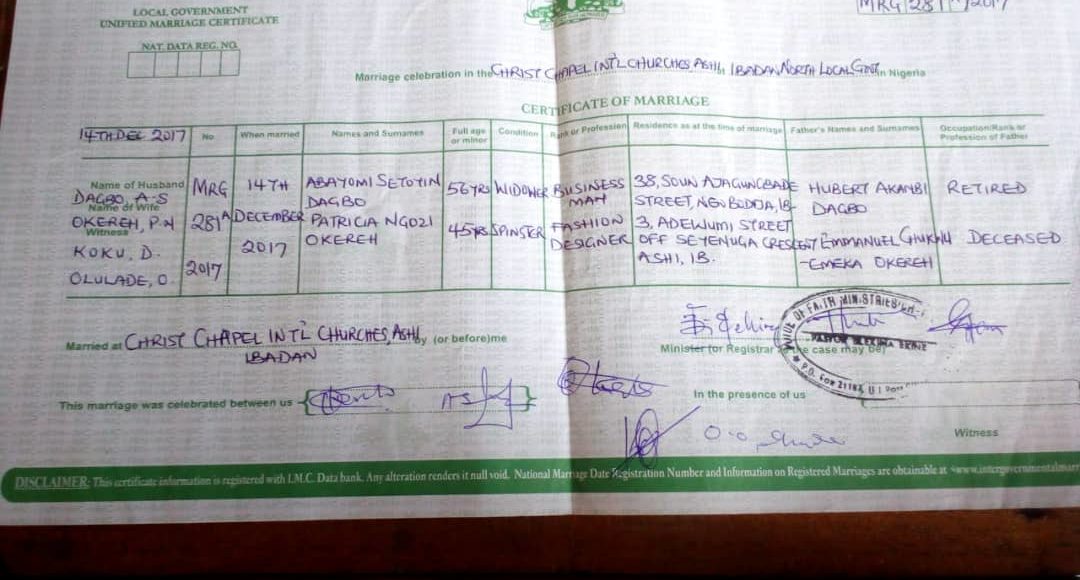 LOCAL GOVERNMENT
UNIFIED MARRIAGE CERTIFICATE
MRG 281A/2017
NAT. DATA REG. NO.
Marriage celebration in the CHRIST CHAPEL INT'L CHURCHES, ASHI, IBADAN NORTH LOCAL GOVT in Nigeria
CERTIFICATE OF MARRIAGE
14TH DEC 2017 No When married Names and Surnames Full age or minor Condition Rank or Profession Residence as at the time of marriage Father's Names and Surnames Occupation/Rank or Profession of Father
Name of Husband
DAGBO, A-S MRG 14TH ABAYOMI SETOYIN DAGBO 56YRS WIDOWER BUSINESS MAN 38, SOUN AJAGUNGBADE STREET, NEW BODIJA, IB HUBERT AKANBI DAGBO RETIRED
Name of Wife
OKEREH, P.N 281A DECEMBER PATRICIA NGOZI OKEREH 45YRS SPINSTER FASHION DESIGNER 3, ADEWUMI STREET OFF SEYENUGA CRESCENT ASHI, IB. EMMANUEL CHUKWU -EMEKA OKEREH DECEASED
Witness
KOKU, D. 2017
OLULADE, O. 2017
Married at CHRIST CHAPEL INT'L CHURCHES, ASHI, IBADAN by (or before) me
Minister (or Registrar as the case may be)
OF FAITH MINISTRIES
PASTOR
P.O. Box 21182 U.I Post
This marriage was celebrated between us
In the presence of us
O.O.
Witness
DISCLAIMER: This certificate information is registered with I.M.C. Data bank. Any alteration renders it null void. National Marriage Date Registration Number and Information on Registered Marriages are obtainable at www.intergovernmentalmarr